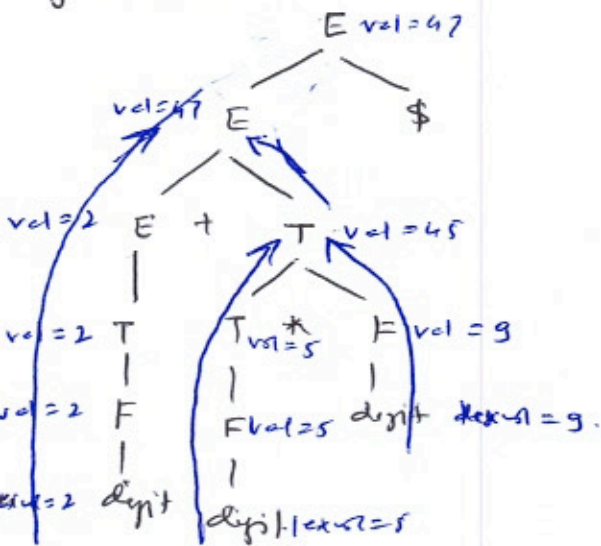 E val=47
val=47 E $
val=2 E + T val=45
val=2 T T val=5 * F val=9
val=2 F F val=5 digit lexval=9.
lexval=2 digit digit lexval=5